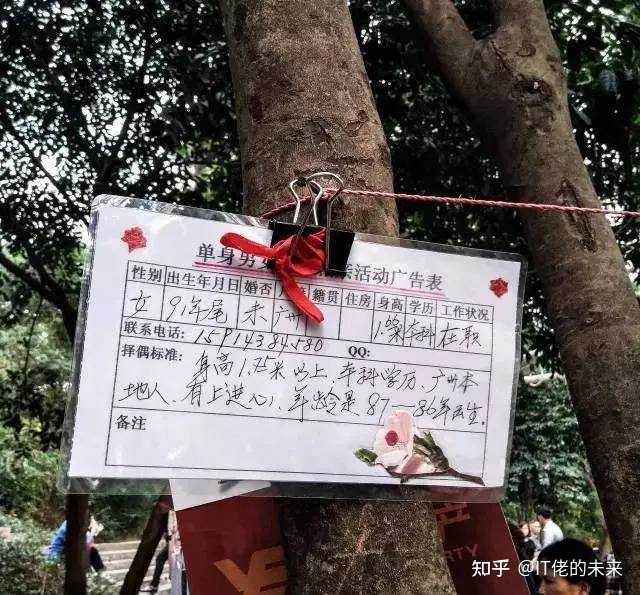 单身男 亲活动广告表
性别 出生年月日 婚否 籍贯 住房 身高 学历 工作状况
女 91年尾 未 广州 本科 在职
联系电话: 15914384580 QQ:
择偶标准: 身高1.75米以上、本科学历、广州本
地人、有上进心、年龄是87—86年出生.
备注
知乎 @IT佬的未来